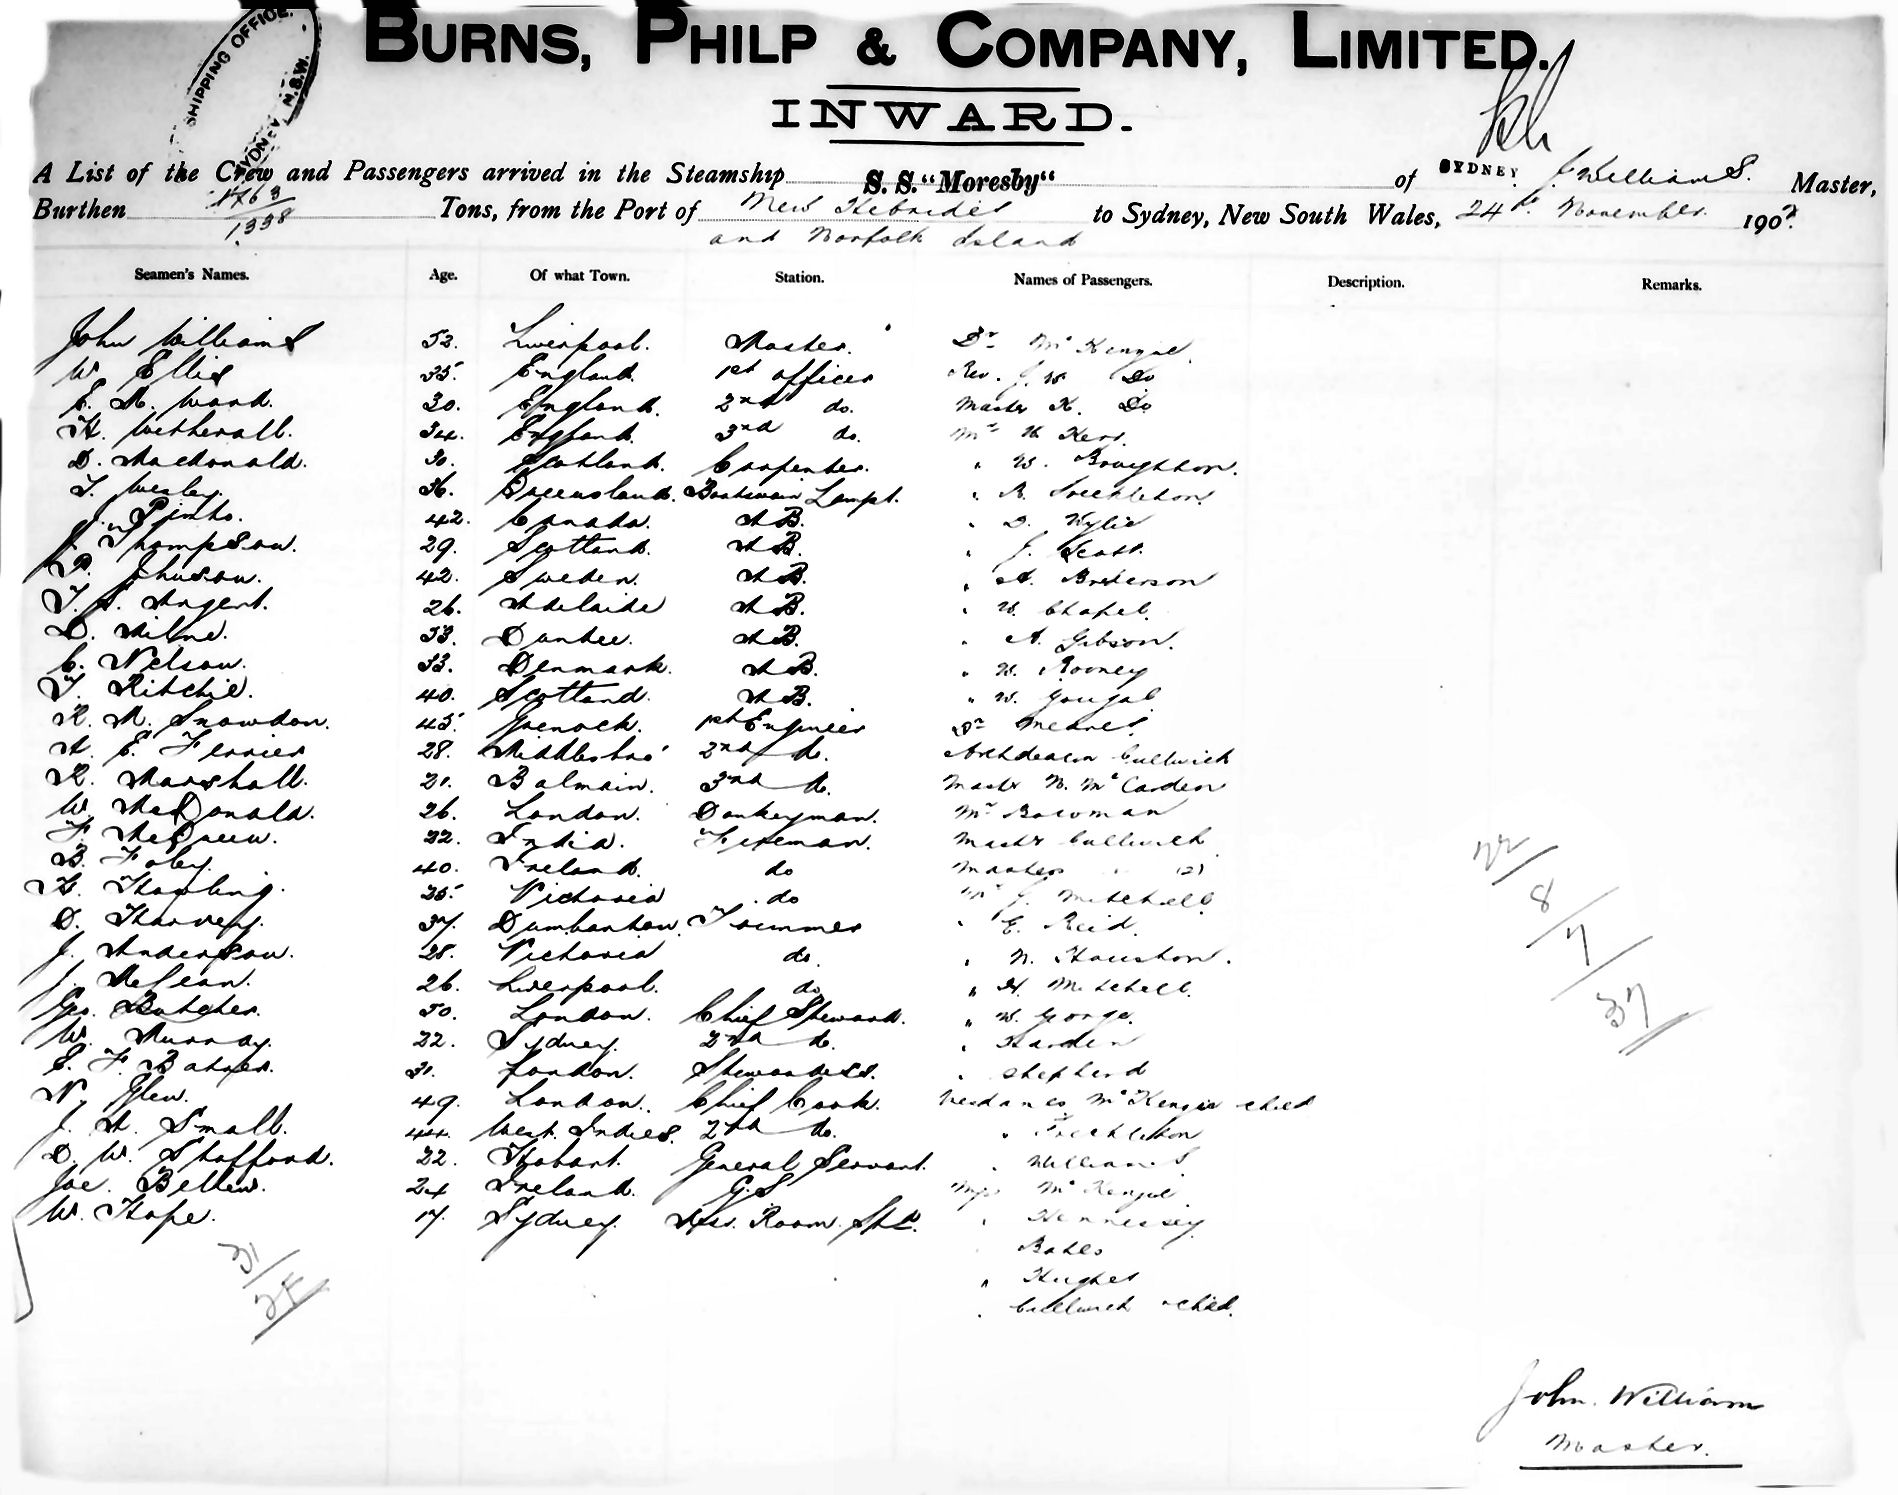 BURNS, PHILP & COMPANY, LIMITED.
SHIPPING OFFICE. SYDNEY N.S.W.
INWARD.
A List of the Crew and Passengers arrived in the Steamship S. S. "Moresby" of SYDNEY J. Williams. Master,
Burthen 1763 / 1338 Tons, from the Port of New Hebrides and Norfolk Island to Sydney, New South Wales, 24th November 190
Seamen's Names. Age. Of what Town. Station. Names of Passengers. Description. Remarks.
John Williams 53. Liverpool. Master. Dr McKenzie.
W. Ellis 35. England. 1st officer Rev. J. W Do
E. A. Ward. 30. England. 2nd do. Master K. Do
H. Wetherall. 34. England. 3rd do. Mr W Kerr.
D. Macdonald. 30. Scotland. Carpenter. " W. Boughton.
T. Wesley. 36. Queensland. Boatswain Lampt. " R. Freckleton
J. Pinto. 42. Canada. AB. " D. Wylie
J. Thompson. 29. Scotland. AB. " J. Scott.
P. Jhuson. 42. Sweden. AB. " A. Anderson
T. S. Argent. 26. Adelaide AB. " W. Chapel.
D. Milne. 33. Dundee. AB. " A. Gibson.
C. Nelson. 33. Denmark. AB. " W. Rooney
T. Ritchie. 40. Scotland. AB. " W. Gougal
R. M. Snowdon. 45. Greenock. 1st Engineer Dr Meares.
A. E. Ferrier 28. Middlesbro' 2nd do. Archdeacon Cullwick
R. Marshall. 21. Balmain. 3rd do. Master N. McCarden
W. McDonald. 26. London. Donkeyman. Mr Bowman
F. McQueen. 22. India. Fireman. Master Cullwick
B. Foley. 40. Ireland. do Masters " (2)
H. Harling. 35. Victoria do Mr J. Mitchell
D. Harvey. 37. Dumbarton. Trimmer " E. Reid.
J. Anderson. 28. Victoria do. " N. Houston.
J. McLean. 26. Liverpool. do " H. Mitchell.
Geo. Butcher. 50. London. Chief Steward. " W. George.
W. Murray. 22. Sydney. 2nd do. " Harden
E. F. Barnes. 31. London. Stewardess. " Shepherd
N. Glew. 49. London. Chief Cook. Mesdames McKenzie child
J. A. Small. 44. West Indies. 2nd do. " Freckleton
D. W. Stafford. 22. Hobart. General Servant. " Williams
Joe. Bellew. 24 Ireland. G.S Miss McKenzie
W. Hope. 17. Sydney. Mess. Room. Std. " Hennessey
" Bates
" Hughes
" Cullwick & child.
31/
22/
8/
7/
37
John. William
Master.